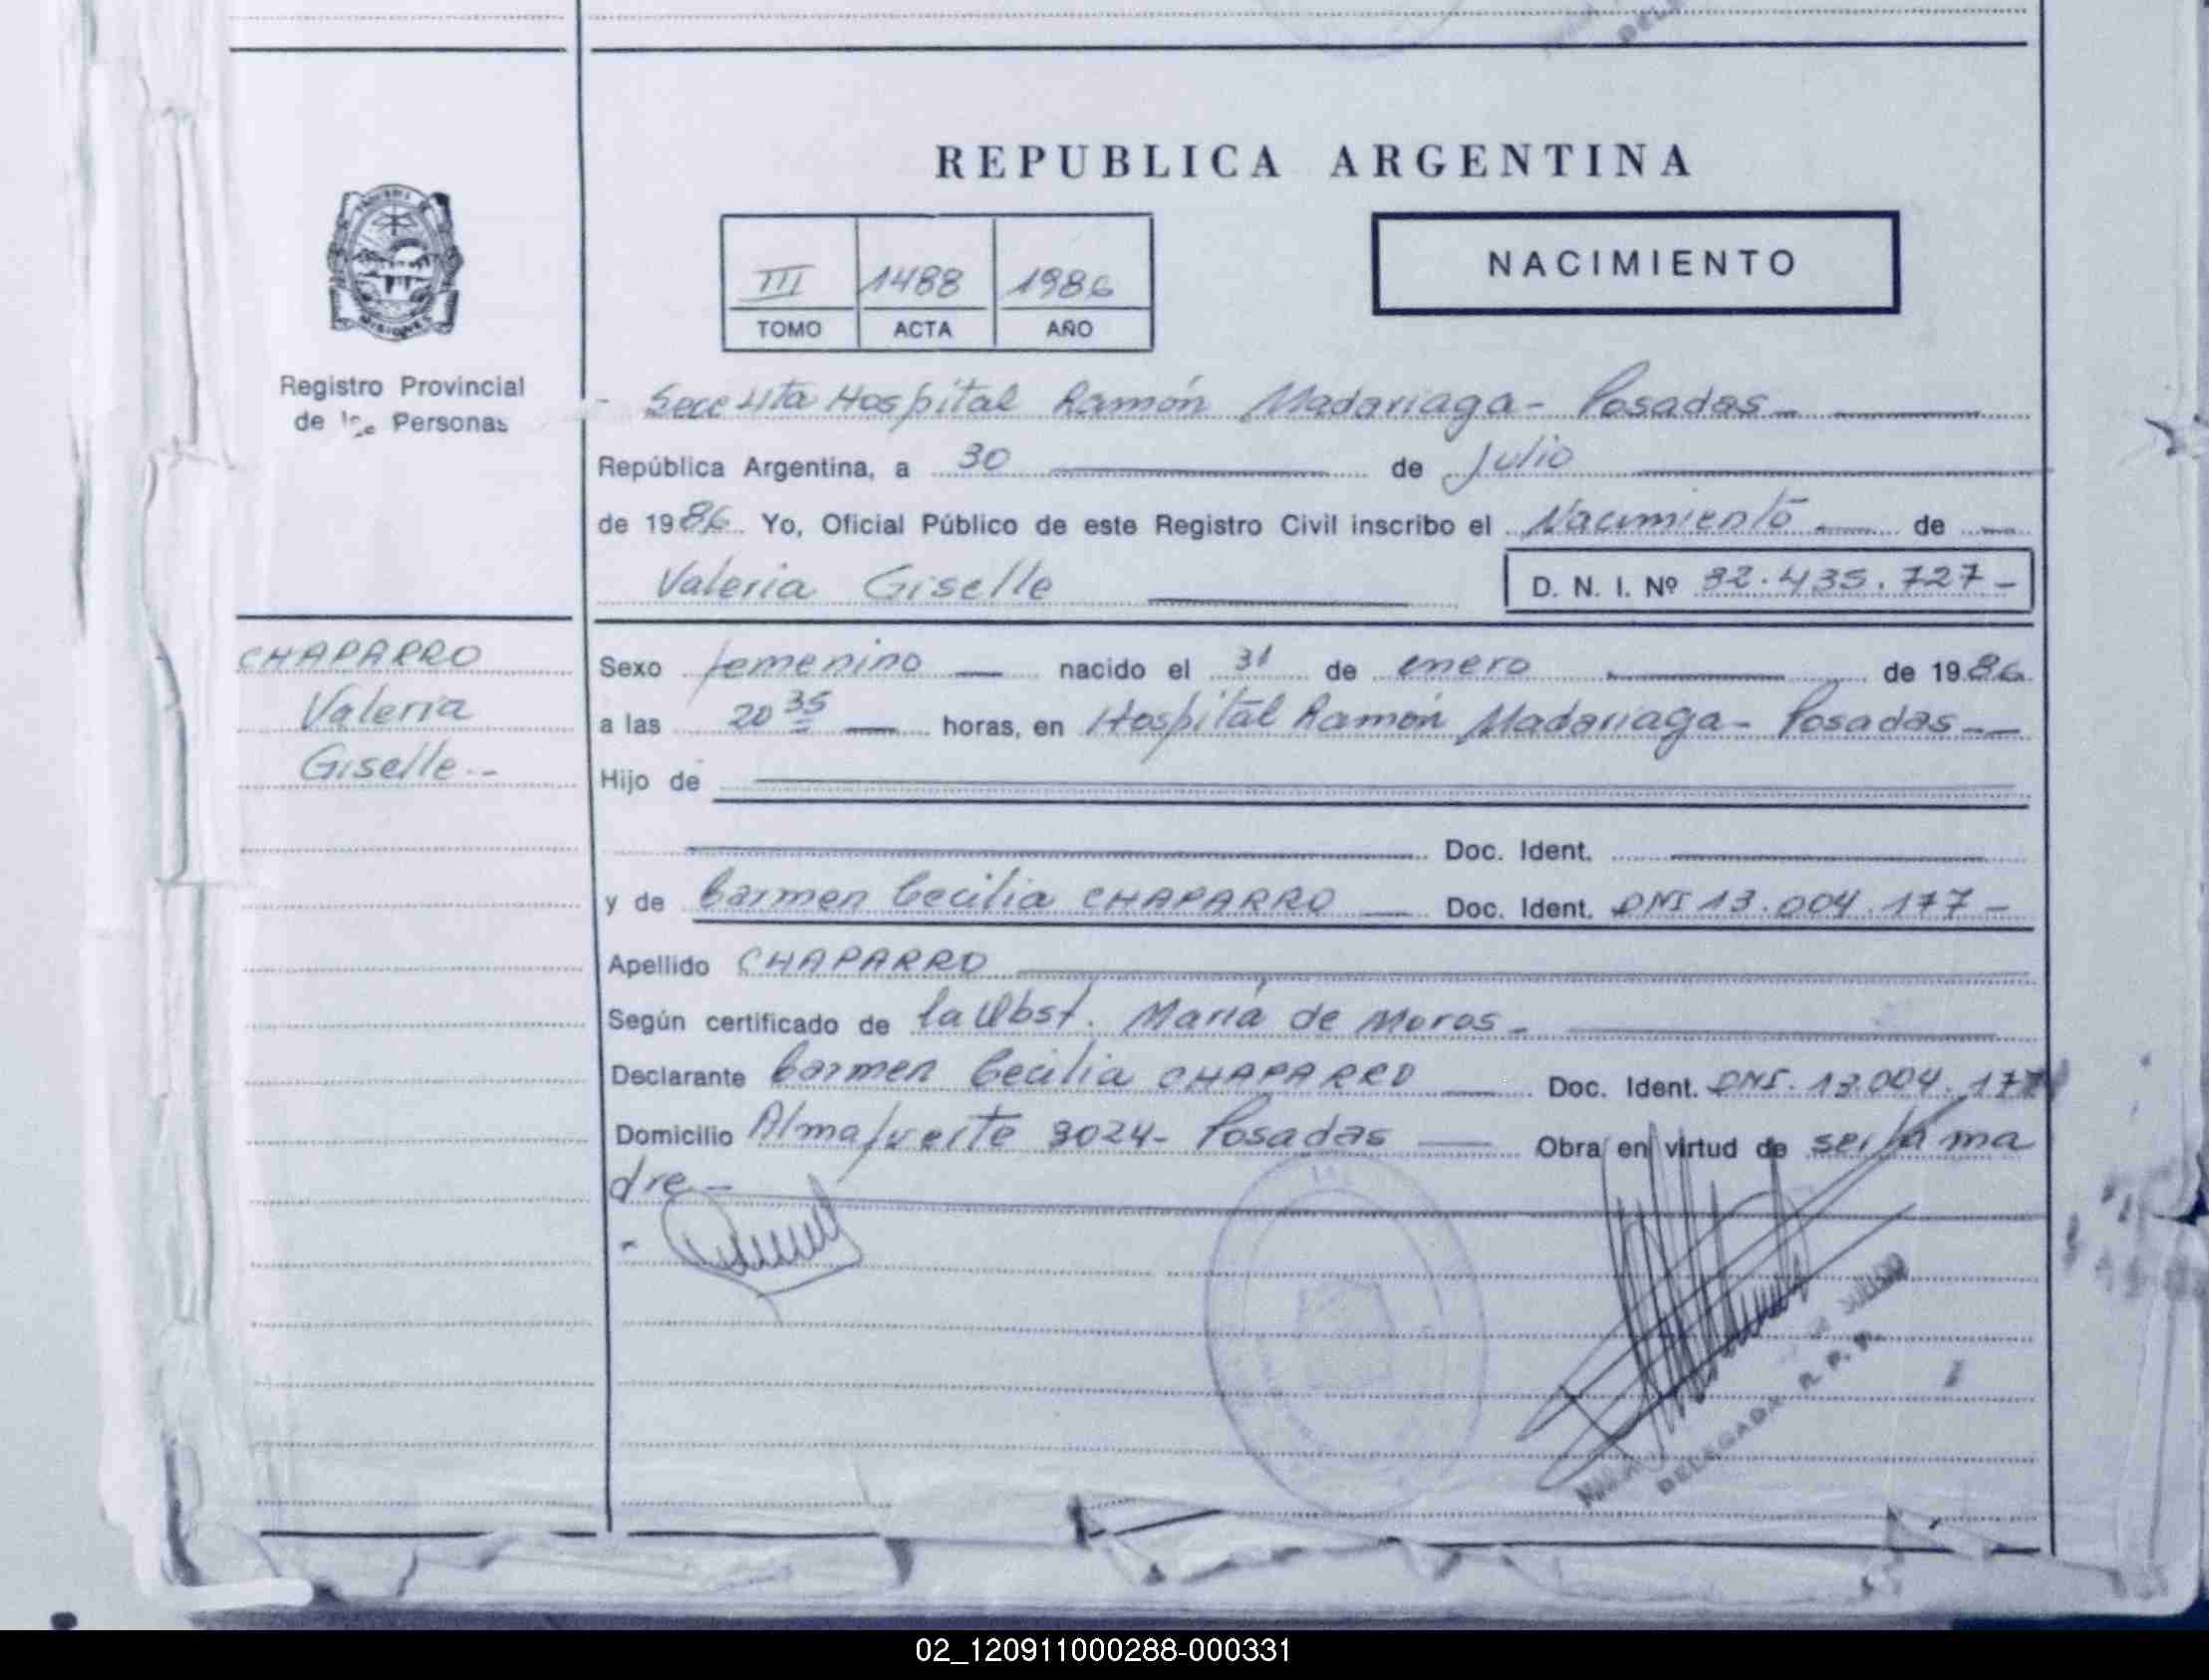 REPUBLICA ARGENTINA
III 1488 1986
TOMO ACTA AÑO
NACIMIENTO
MISIONES
Registro Provincial
de Personas
Hospital Ramón Madariaga - Posadas -
República Argentina, a 30 de Julio
de 1986. Yo, Oficial Público de este Registro Civil inscribo el Nacimiento de
Valeria Giselle D. N. I. Nº 32.435.727-
CHAPARRO
Valeria
Giselle.-
Sexo femenino nacido el 31 de enero de 1986
a las 20 35 horas, en Hospital Ramón Madariaga - Posadas -
Hijo de
Doc. Ident.
y de Carmen Cecilia CHAPARRO Doc. Ident. DNI 13.004.177-
Apellido CHAPARRO
Según certificado de la Obst. María de Moros -
Declarante Carmen Cecilia CHAPARRO Doc. Ident. DNI. 13.004.177
Domicilio Almafuerte 3024- Posadas Obra en virtud de ser la ma
dre -
DELEGADA R. P. P.
02_120911000288-000331